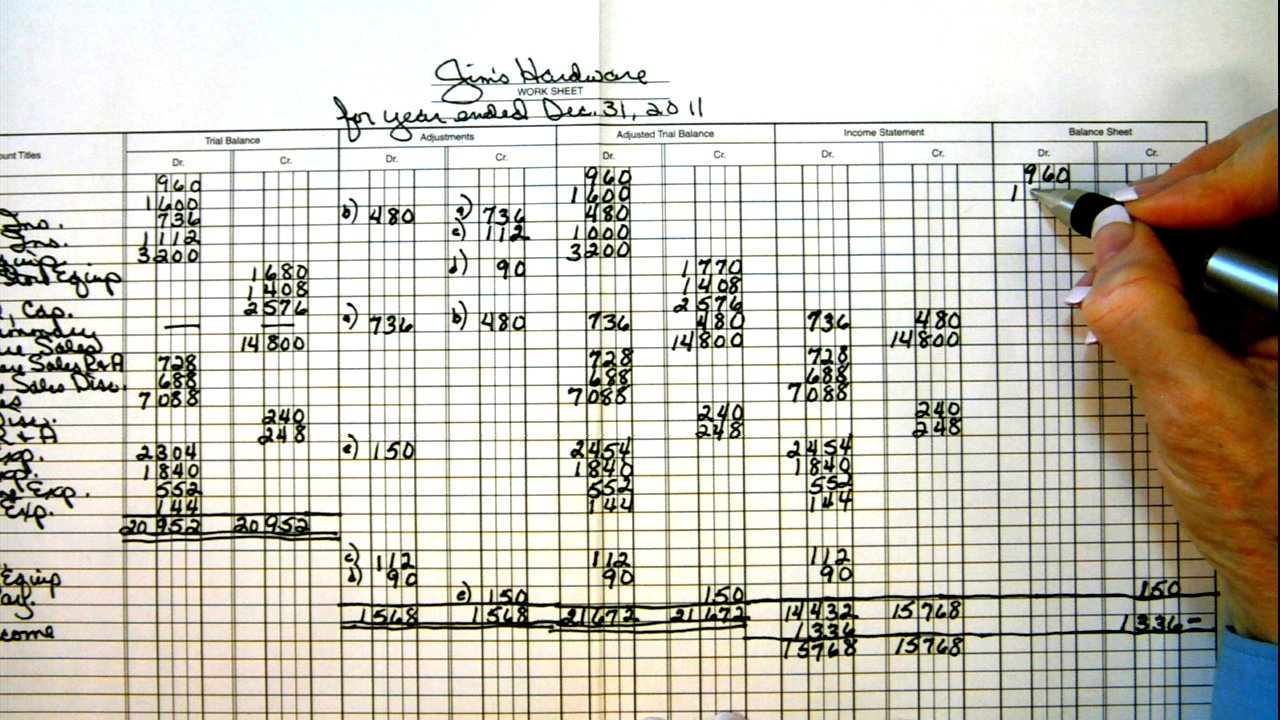 Jim's Hardware
WORK SHEET
for year ended Dec. 31, 2011
Trial Balance Adjustments Adjusted Trial Balance Income Statement Balance Sheet
unt Titles Dr. Cr. Dr. Cr. Dr. Cr. Dr. Cr. Dr. Cr.
960 960 960
1600 1600 1
Ins. 736 b) 480 a) 736 480
Ins. 1112 c) 112 1000
3200 3200
Store Equip 1680 d) 90 1770
1408 1408
, Cap. 2576 2576
— — a) 736 b) 480 736 480 736 480
Sales 14800 14800 14800
Sales R+A 728 728 728
Sales Disc. 688 688 688
7088 7088 7088
Disc. 240 240 240
R+A 248 248 248
Exp. 2304 e) 150 2454 2454
1840 1840 1840
Exp. 552 552 552
Exp. 144 144 144
20952 20952
c) 112 112 112
Equip d) 90 90 90
e) 150 150 150
1568 1568 21672 21672 14432 15768
come 1336 1336-
15768 15768